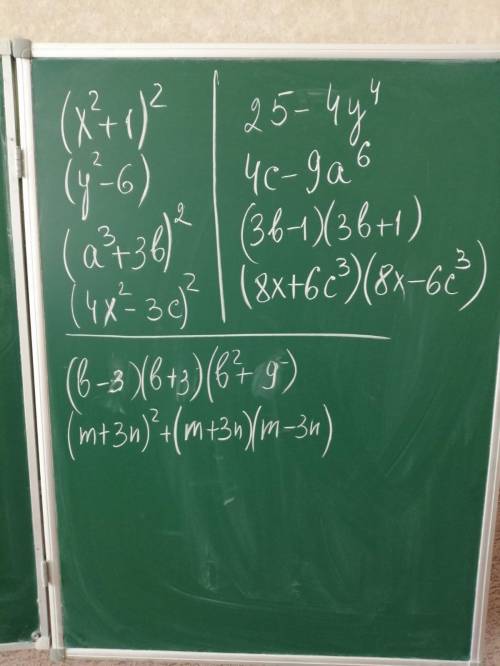 (x²+1)²
(y²-6)
(a³+3b)²
(4x²-3c)²
25-4y⁴
4c-9a⁶
(3b-1)(3b+1)
(8x+6c³)(8x-6c³)
(b-3)(b+3)(b²+9)
(m+3n)²+(m+3n)(m-3n)